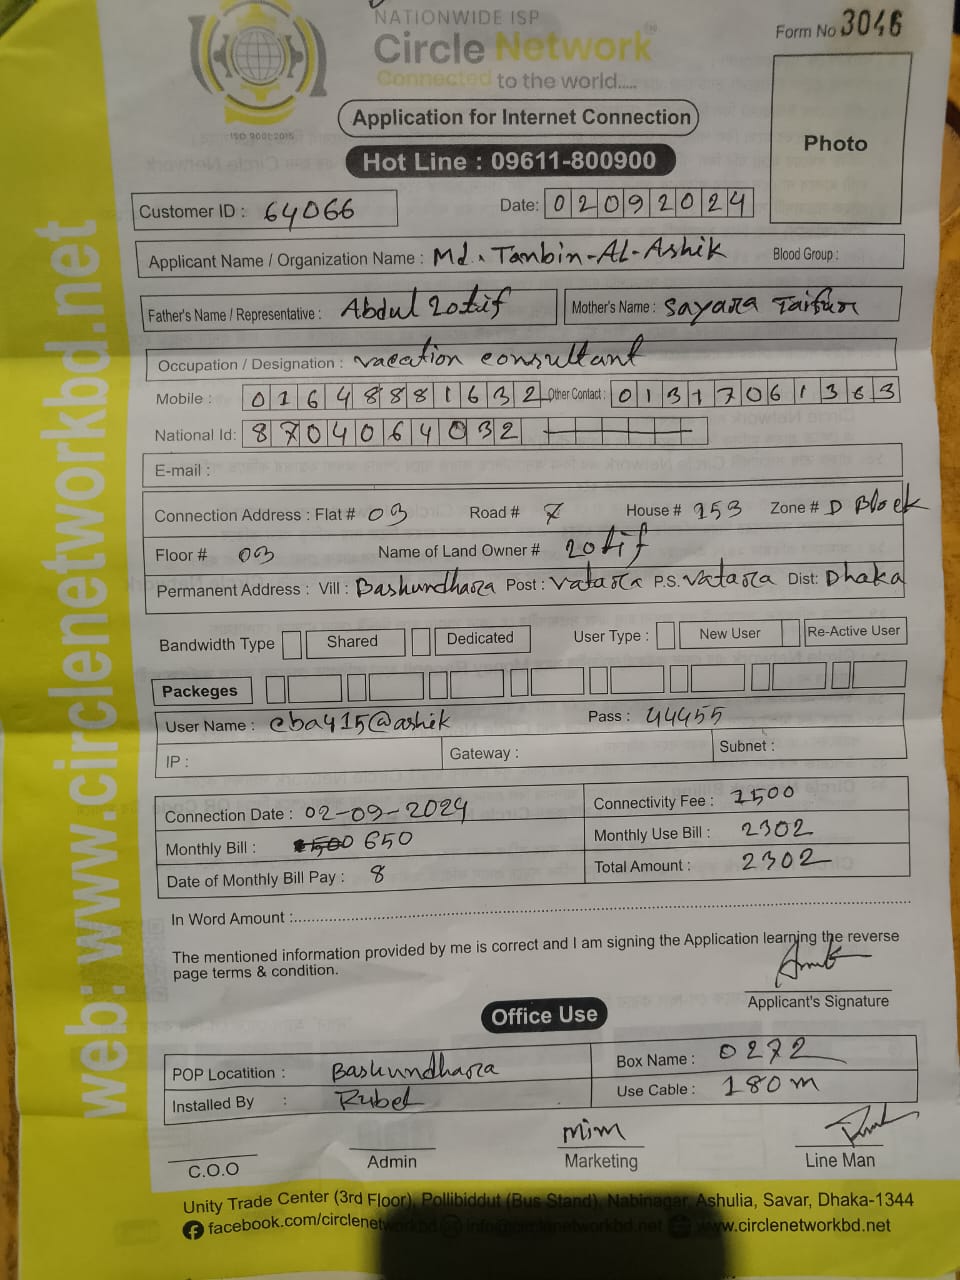 NATIONWIDE ISP
Circle Network
Connected to the world.....
Form No 3046
ISO 9001:2015
Application for Internet Connection
Hot Line : 09611-800900
Photo
Customer ID : 64066
Date: 02092024
Applicant Name / Organization Name : Md. Tanbin-AL-Ashik Blood Group :
Father's Name / Representative : Abdul Lotif Mother's Name : Sayara Taifur
Occupation / Designation : vacation consultant
Mobile : 01648881632 Other Contact : 01317061363
National Id: 8704064032
E-mail :
Connection Address : Flat # 03 Road # 7 House # 153 Zone # D Block
Floor # 03 Name of Land Owner # Lotif
Permanent Address : Vill : Bashundhara Post : Vatara P.S. Vatara Dist: Dhaka
Bandwidth Type Shared Dedicated User Type : New User Re-Active User
Packeges
User Name : cba415@ashik Pass : 44455
IP : Gateway : Subnet :
Connection Date : 02-09-2024 Connectivity Fee : 1500
Monthly Bill : 650 Monthly Use Bill : 2302
Date of Monthly Bill Pay : 8 Total Amount : 2302
In Word Amount :
The mentioned information provided by me is correct and I am signing the Application learning the reverse
page terms & condition.
Applicant's Signature
Office Use
POP Locatition : Bashundhara Box Name : 0272
Installed By : Rubel Use Cable : 180m
mim
C.O.O Admin Marketing Line Man
Unity Trade Center (3rd Floor), Pollibiddut (Bus Stand), Nabinagar, Ashulia, Savar, Dhaka-1344
facebook.com/circlenetworkbd info@circlenetworkbd.net www.circlenetworkbd.net
web: www.circlenetworkbd.net